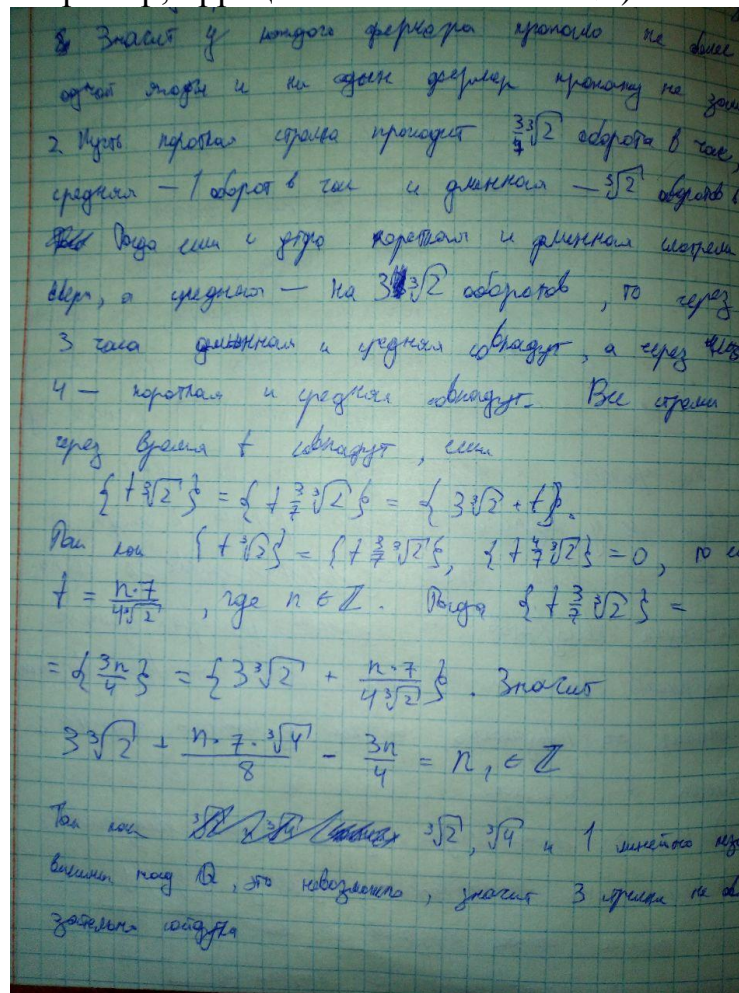 Значит у каждого фермера пропало не более
одной ягоды и ни один фермер пропажу не
2. Пусть короткая стрелка проходит 3/7 ∛2 оборота в час,
средняя — 1 оборот в час и длинная — ∛2 оборотов в
Тогда если с утра короткая и длинная смотрели
вверх, а средняя — на 3∛2 оборотов, то через
3 часа длинная и средняя совпадут, а через
4 — короткая и средняя совпадут. Все стрелки
через время t совпадут, если
{t∛2} = {t 3/7 ∛2} = {3∛2 + t}.
Так как {t∛2} = {t 3/7 ∛2}, {t 4/7 ∛2} = 0, то
t = n·7/4∛2, где n ∈ ℤ. Тогда {t 3/7 ∛2} =
= {3n/4} = {3∛2 + n·7/4∛2}. Значит
3∛2 + n·7·∛4/8 − 3n/4 = n₁ ∈ ℤ
Так как ∛2, ∛4 и 1 линейно
над ℚ, это невозможно, значит 3 стрелки не